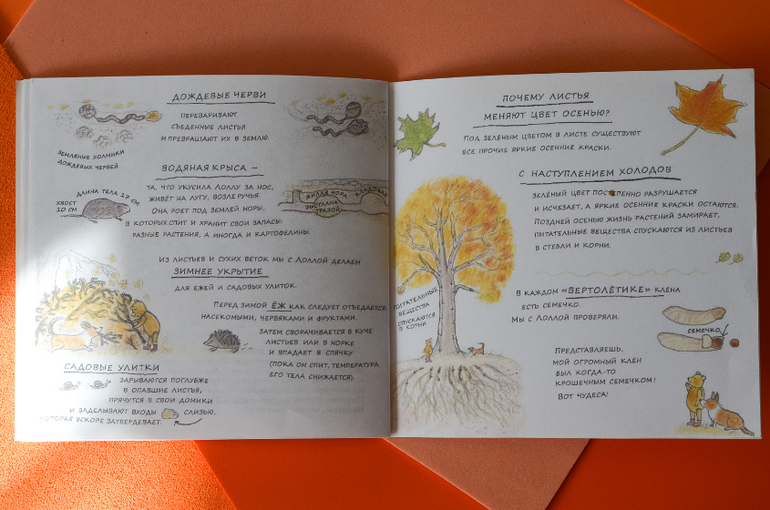 ДОЖДЕВЫЕ ЧЕРВИ
ПЕРЕВАРИВАЮТ
СЪЕДЕННЫЕ ЛИСТЬЯ
И ПРЕВРАЩАЮТ ИХ В ЗЕМЛЮ.
ЗЕМЛЯНЫЕ ХОЛМИКИ
ДОЖДЕВЫХ ЧЕРВЕЙ
ВОДЯНАЯ КРЫСА –
ТА, ЧТО УКУСИЛА ЛОЛЛУ ЗА НОС,
ЖИВЁТ НА ЛУГУ, ВОЗЛЕ РУЧЬЯ.
ОНА РОЕТ ПОД ЗЕМЛЕЙ НОРЫ,
В КОТОРЫХ СПИТ И ХРАНИТ СВОИ ЗАПАСЫ:
РАЗНЫЕ РАСТЕНИЯ, А ИНОГДА И КАРТОФЕЛИНЫ.
ДЛИНА ТЕЛА 17 СМ
ХВОСТ
10 СМ
ЖИЛАЯ НОРА
ВЫСТЛАНА
ТРАВОЙ
КЛАДОВАЯ
ИЗ ЛИСТЬЕВ И СУХИХ ВЕТОК МЫ С ЛОЛЛОЙ ДЕЛАЕМ
ЗИМНЕЕ УКРЫТИЕ
ДЛЯ ЕЖЕЙ И САДОВЫХ УЛИТОК.
ПЕРЕД ЗИМОЙ ЁЖ КАК СЛЕДУЕТ ОТЪЕДАЕТСЯ
НАСЕКОМЫМИ, ЧЕРВЯКАМИ И ФРУКТАМИ,
ЗАТЕМ СВОРАЧИВАЕТСЯ В КУЧЕ
ЛИСТЬЕВ ИЛИ В НОРКЕ
И ВПАДАЕТ В СПЯЧКУ
(ПОКА ОН СПИТ, ТЕМПЕРАТУРА
ЕГО ТЕЛА СНИЖАЕТСЯ).
САДОВЫЕ УЛИТКИ
ЗАРЫВАЮТСЯ ПОГЛУБЖЕ
В ОПАВШИЕ ЛИСТЬЯ,
ПРЯЧУТСЯ В СВОИ ДОМИКИ
И ЗАДЕЛЫВАЮТ ВХОДЫ СЛИЗЬЮ,
КОТОРАЯ ВСКОРЕ ЗАТВЕРДЕВАЕТ.
ПОЧЕМУ ЛИСТЬЯ
МЕНЯЮТ ЦВЕТ ОСЕНЬЮ?
ПОД ЗЕЛЁНЫМ ЦВЕТОМ В ЛИСТЕ СУЩЕСТВУЮТ
ВСЕ ПРОЧИЕ ЯРКИЕ ОСЕННИЕ КРАСКИ.
С НАСТУПЛЕНИЕМ ХОЛОДОВ
ЗЕЛЁНЫЙ ЦВЕТ ПОСТЕПЕННО РАЗРУШАЕТСЯ
И ИСЧЕЗАЕТ, А ЯРКИЕ ОСЕННИЕ КРАСКИ ОСТАЮТСЯ.
ПОЗДНЕЙ ОСЕНЬЮ ЖИЗНЬ РАСТЕНИЙ ЗАМИРАЕТ,
ПИТАТЕЛЬНЫЕ ВЕЩЕСТВА СПУСКАЮТСЯ ИЗ ЛИСТЬЕВ
В СТЕБЛИ И КОРНИ.
ПИТАТЕЛЬНЫЕ
ВЕЩЕСТВА
СПУСКАЮТСЯ
В КОРНИ
В КАЖДОМ «ВЕРТОЛЁТИКЕ» КЛЁНА
ЕСТЬ СЕМЕЧКО.
МЫ С ЛОЛЛОЙ ПРОВЕРЯЛИ.
СЕМЕЧКО
ПРЕДСТАВЛЯЕШЬ,
МОЙ ОГРОМНЫЙ КЛЁН
БЫЛ КОГДА-ТО
КРОШЕЧНЫМ СЕМЕЧКОМ!
ВОТ ЧУДЕСА!